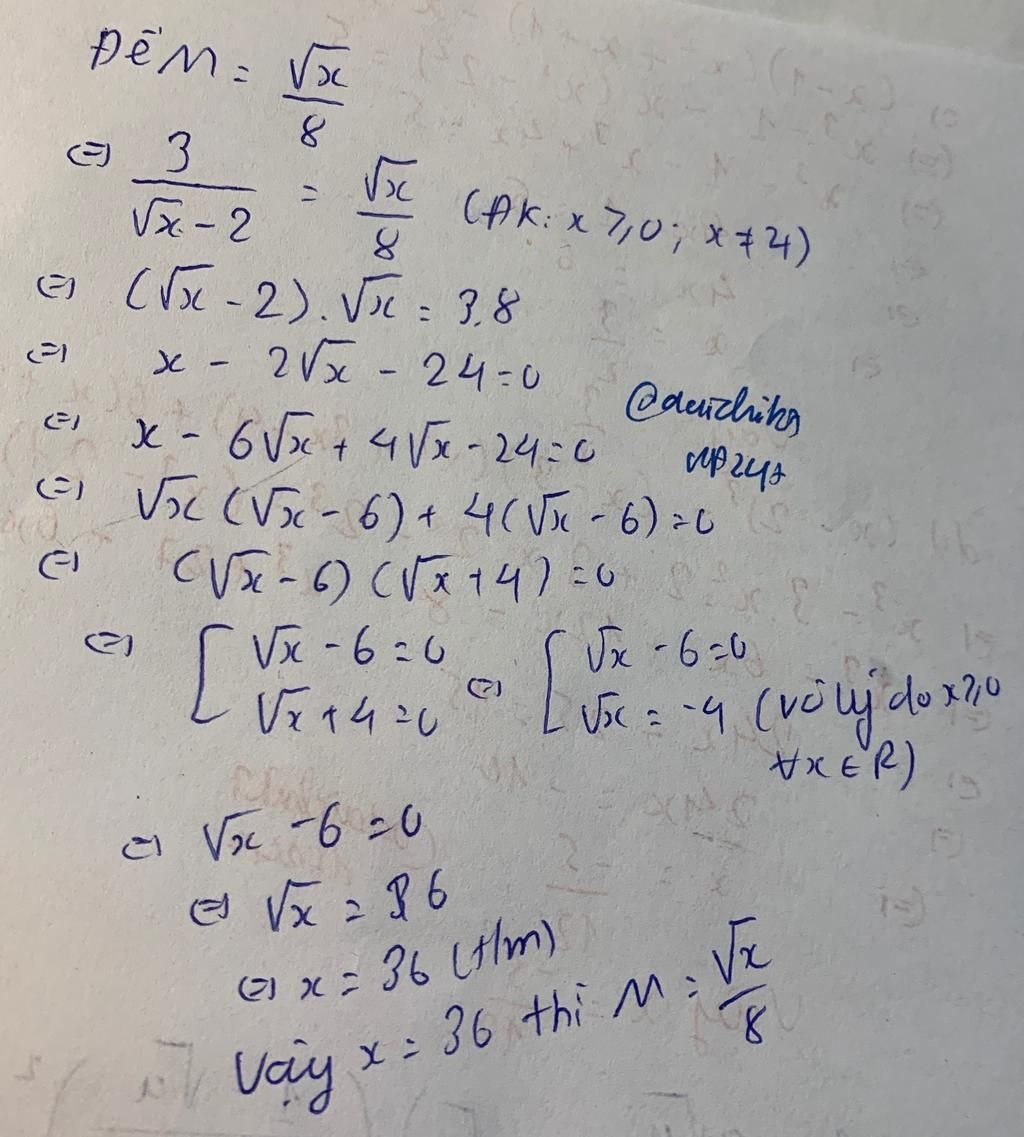 Để M = √x/8
(=) 3/(√x - 2) = √x/8 (ĐK: x ≥ 0; x ≠ 4)
(=) (√x - 2).√x = 3.8
(=) x - 2√x - 24 = 0
(=) x - 6√x + 4√x - 24 = 0
(=) √x (√x - 6) + 4(√x - 6) = 0
(=) (√x - 6)(√x + 4) = 0
(=) [ √x - 6 = 0 (=) [ √x - 6 = 0
√x + 4 = 0 √x = -4 (vô lý do x ≥ 0
∀x ∈ R)
(=) √x - 6 = 0
(=) √x = 6
(=) x = 36 (t/m)
Vậy x = 36 thì M = √x/8